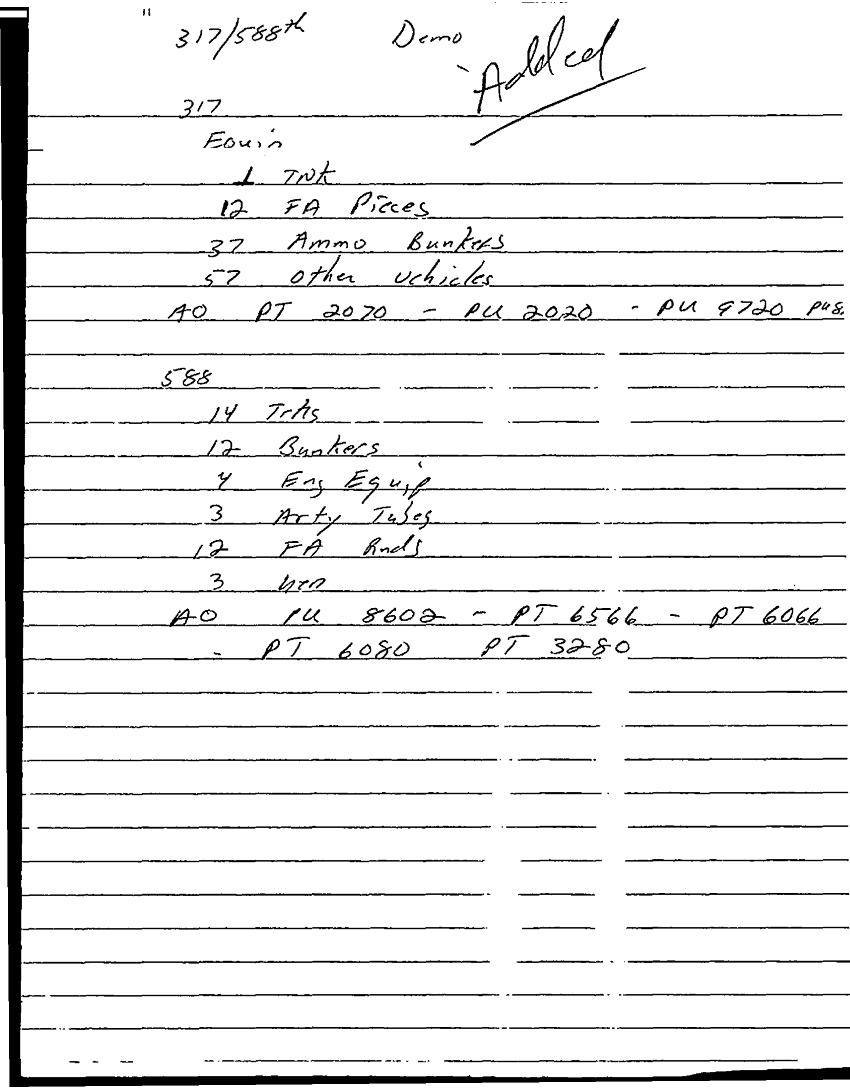 317/588th Demo
Added
317
Equip
1 TNK
12 FA Pieces
37 Ammo Bunkers
57 Other Vehicles
AO PT 2070 - PU 2020 - PU 9720
588
14 Trks
12 Bunkers
4 Eng Equip
3 Arty Tubes
12 FA Rnds
3
AO PU 8602 - PT 6566 - PT 6066
- PT 6080 PT 3280